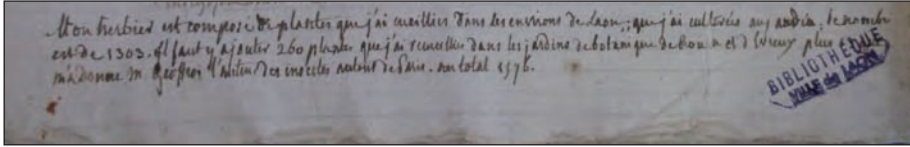 Mon herbier est composé de plantes que j'ai cueillies dans les environs de Laon; que j'ai cultivées au jardin, le nombre
est de 1303. il faut y ajouter 260 plantes que j'ai recueillies dans les jardins de botanique de Rouen et d'Evreux plus
m'a donné M. Geoffroi l'auteur des insectes autour de Paris. au total 1576.
BIBLIOTHÈQUE
VILLE de LAON